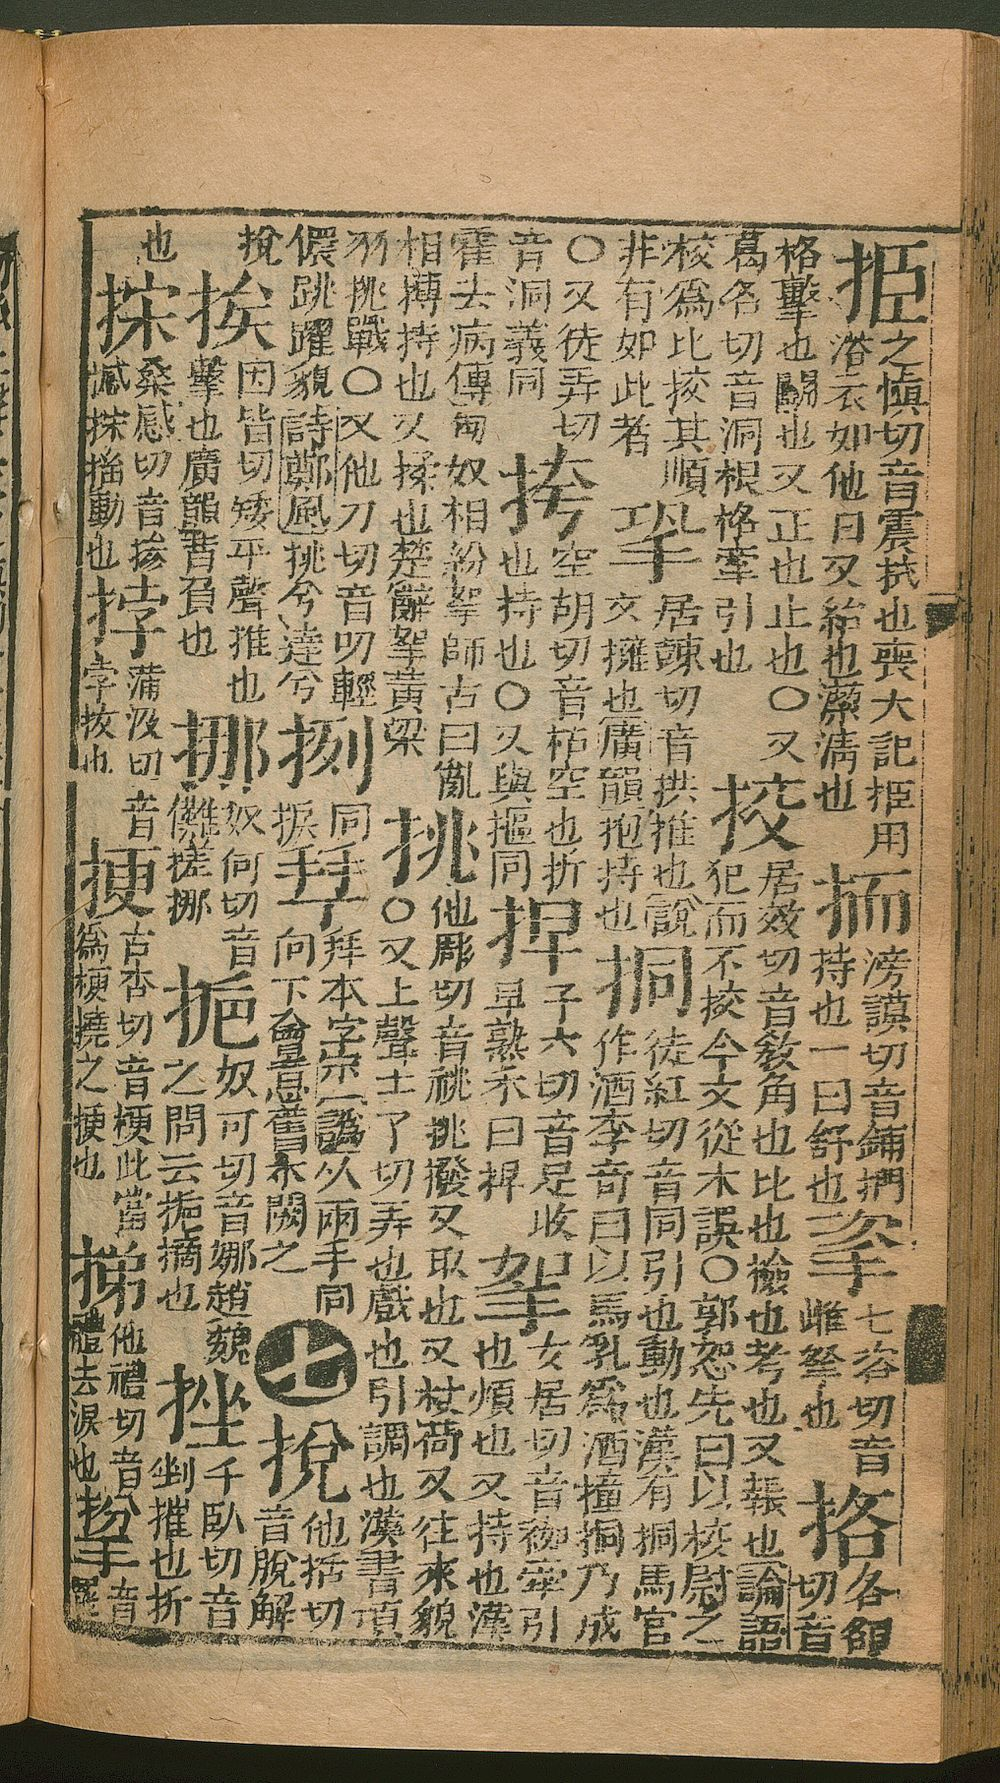 挋 之慎切音震拭也喪大記挋用
浴衣如他日又給也潔淸也
捕 滂謨切音鋪捫
持也一曰舒也
七咨切音
雌拏也
挌 各額
切音
格擊也鬭也又正也止也〇又
葛各切音洞根格牽引也
挍 居效切音敎角也比也撿也考也又報也論語
犯而不挍今文從木誤〇郭恕先曰以校尉之
校爲比挍其順
非有如此者
㧬 居竦切音拱推也說
文擁也廣韻抱持也
挏 徒紅切音同引也動也漢有挏馬官
作酒李奇曰以馬乳爲酒撞挏乃成
〇又徒弄切
音洞義同
挎 空胡切音枯空也折
也持也〇又與摳同
子六切音足收
早熟禾曰
挐 女居切音袽牽引
也煩也又持也漢
霍去病傳匈奴相紛挐師古曰亂
相搏持也又揉也楚辭挐黃粱
挑 他彫切音祧挑撥又取也又杖荷又往來貌
〇又上聲土了切弄也戲也引調也漢書項
羽挑戰〇又他刀切音叨輕
儇跳躍貌詩鄭風挑兮達兮
挒 同
捩
拜本字宗一譌从兩手同
向下會意舊本闕之
七
挩 他括切
音脫解
挩
挨 因皆切矮平聲推也
擊也廣韻背負也
挪 奴何切音
儺搓挪
奴可切音娜趙魏
之間云掋擿也
挫 千臥切音
剉摧也折
也
桑感切音
撼 搖動也
挬 蒲没切音
孛拔也
挭 古杏切音梗此當
爲梗撓之挭也
挮 他禮切音
體去淚也
音